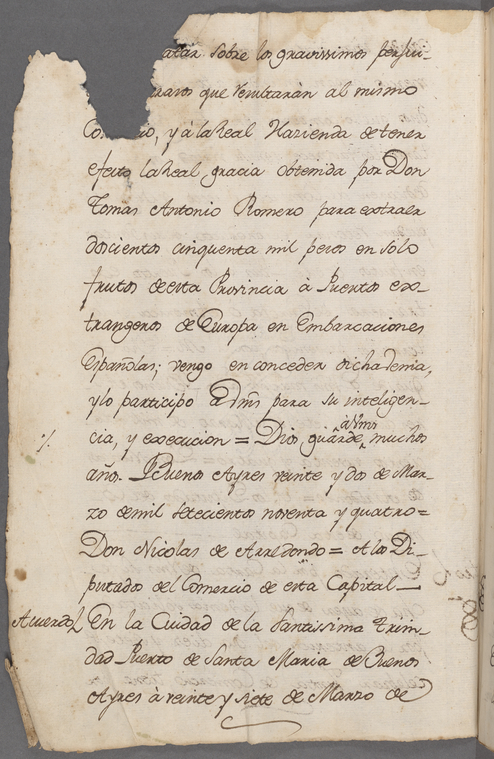 atar sobre los gravissimos perjui-
raros que resultarán al mismo
Co io, y à la Real Hazienda de tener
efecto la Real gracia obtenida por Don
Tomas Antonio Romero para extraer
docientos cinquenta mil pesos en solo
frutos de esta Provincia à Puertos ex-
trangeros de Europa en Embarcaciones
Españolas; vengo en conceder dicha lemia,
y lo participo à Vms para su inteligen-
cia, y execucion = Dios guãrde à Vms muchos
años. Buenos Ayres veinte y dos de Mar-
zo de mil setecientos noventa y quatro =
Don Nicolas de Arredondo = A los Di-
putados del Comercio de esta Capital —
Acuerdo En la Ciudad de la Santissima Trini-
dad Puerto de Santa Maria de Buenos
Ayres à veinte y siete de Marzo de